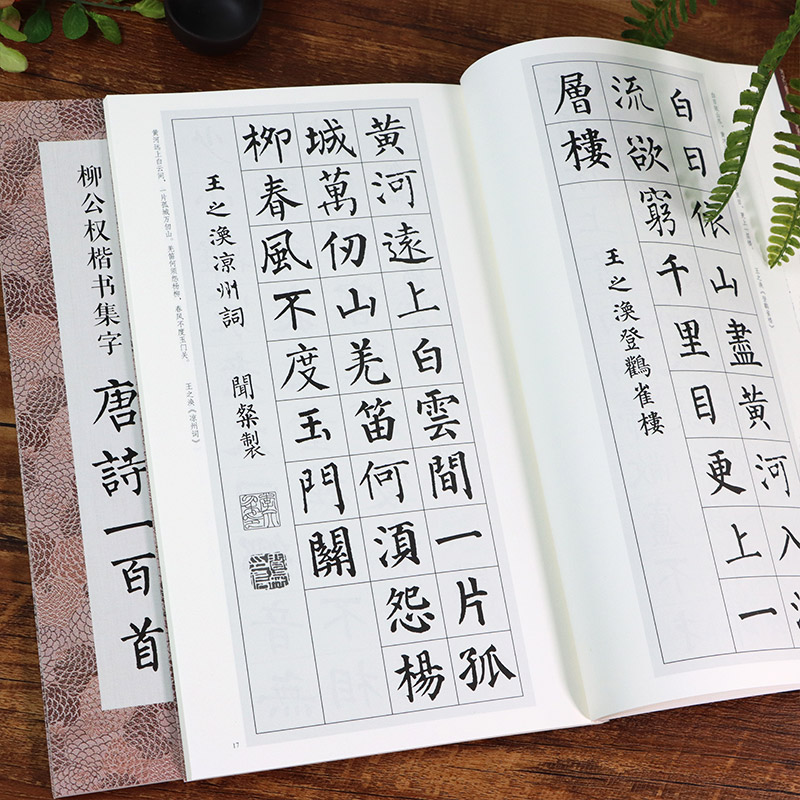 柳公权楷书集字
唐詩一百首
黄河遠上白雲間一片孤
城萬仞山羌笛何須怨楊
柳春風不度玉門關
王之渙凉州詞 聞粲製
黄河远上白云间,一片孤城万仞山。羌笛何须怨杨柳,春风不度玉门关。 王之涣《凉州词》
17
白日依山盡黄河入
流欲窮千里目更上一
層樓
王之渙登鸛雀樓